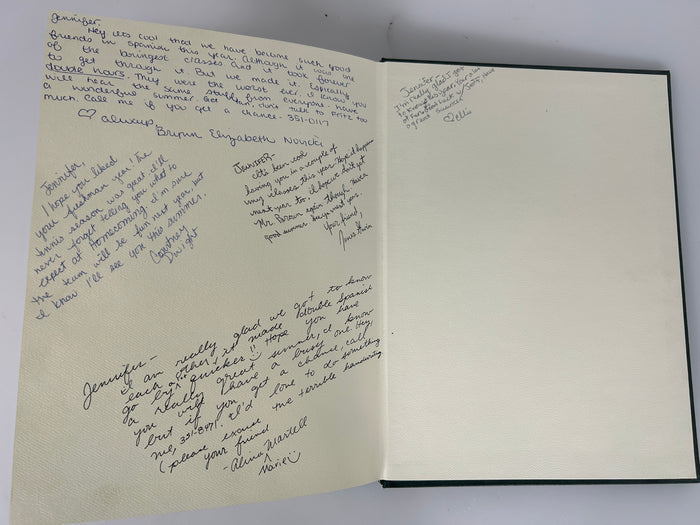 Jennifer,
Hey its cool that we have become such good
friends in spanish this year. Although it was one
of the boringest classes and it took forever
to get through it. But we made it. Especially
double hours. They were the worst ever. I know you
will hear the same stuff from everyone- have
a wonderful summer. Get talk to Fritz too
much. Call me if you get a chance- 351-0117
♡ always,
Brynn Elizabeth
Jennifer,
I hope you liked
your freshman year! The
tennis season was great. I'll
never forget telling you what to
expect at Homecoming. I'm sure
the team will be fun next year, but
I know I'll see you this summer.
Courtney
Dwight
Jennifer-
It's been cool
having you in a couple of
my classes this year. Hope it happens
next year too. I hope we don't get
Mr. Brown again though. Have a
good summer. next year.
Your friend,
James
Jennifer-
I am really glad we got to know
each other! It made double Spanish
go by quicker!! Hope you have
a really great summer, I know
you will have a busy one. Hey,
but if you get a chance, call
me, 351-8971. I'd love to do something
(please excuse the terrible handwriting
your friend
-Alina Martell
Marie
Jennifer,
I'm really glad I got
to know you this year. You're a lot
of fun. Good luck w/ and have
a great summer
♡ Ellie